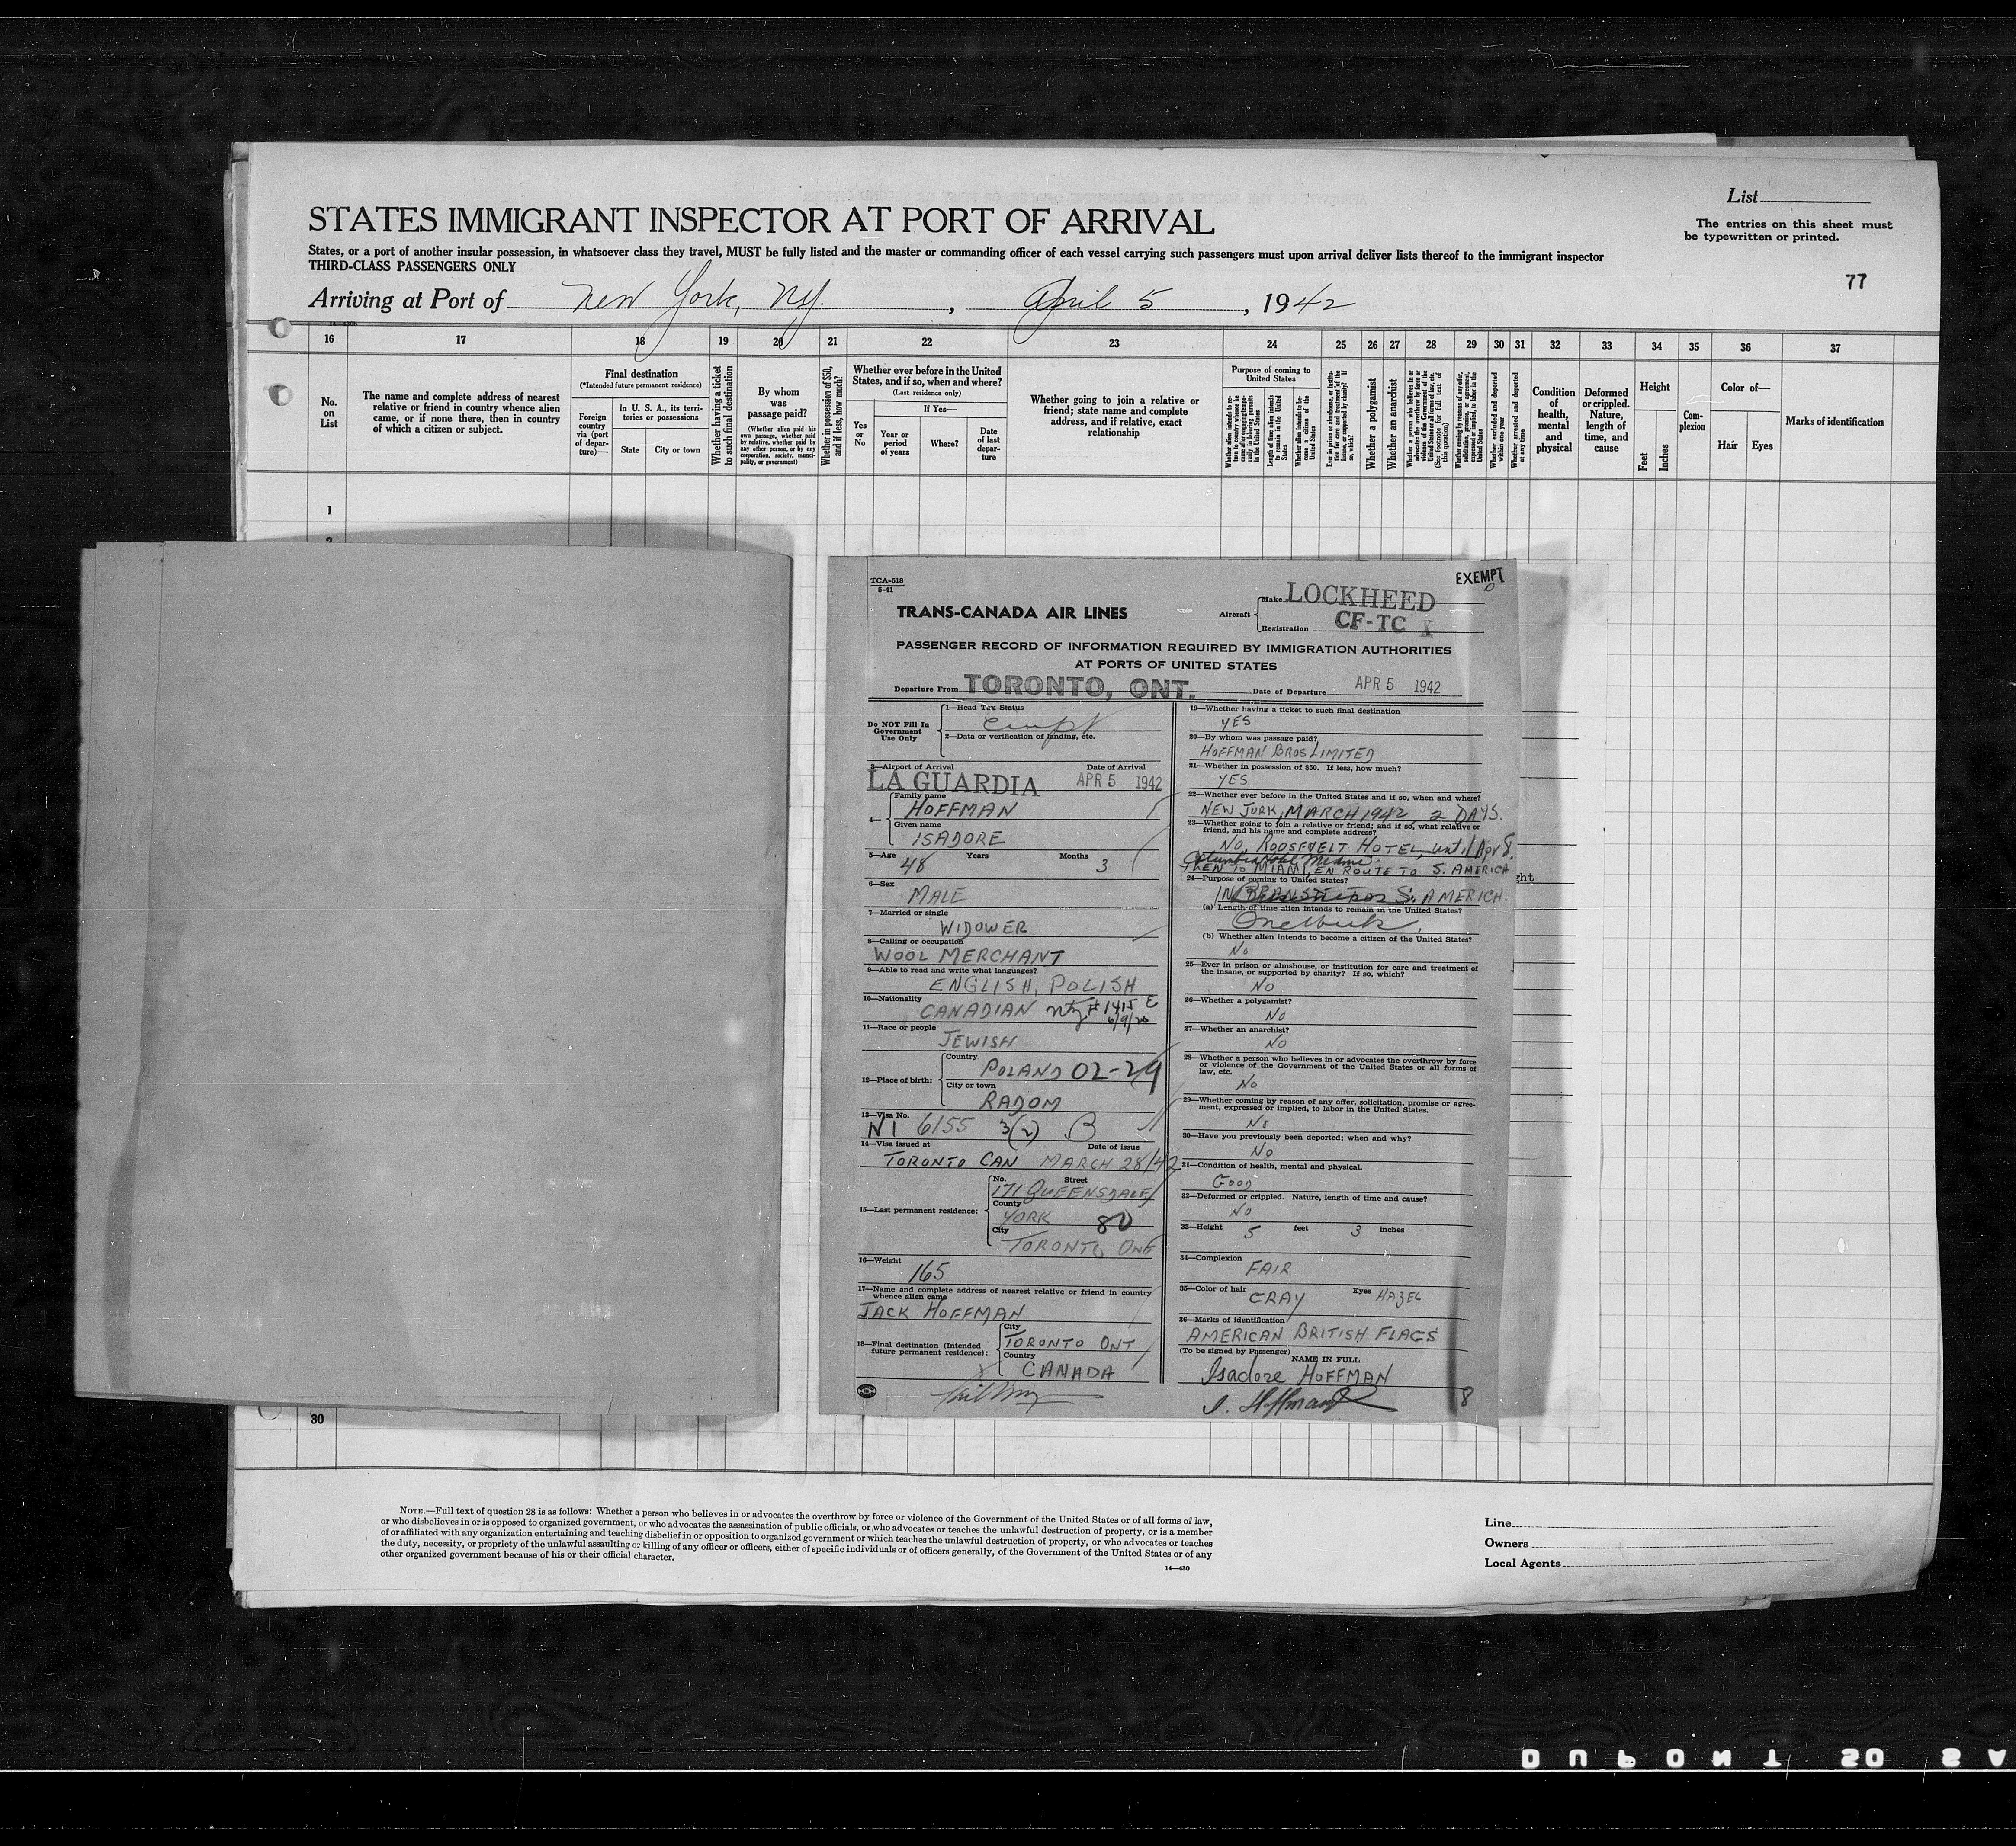 List
STATES IMMIGRANT INSPECTOR AT PORT OF ARRIVAL
The entries on this sheet must
be typewritten or printed.
States, or a port of another insular possession, in whatsoever class they travel, MUST be fully listed and the master or commanding officer of each vessel carrying such passengers must upon arrival deliver lists thereof to the immigrant inspector
THIRD-CLASS PASSENGERS ONLY
77
Arriving at Port of New York, NY. , April 5 , 1942
16 17 18 19 20 21 22 23 24 25 26 27 28 29 30 31 32 33 34 35 36 37
No.
on
List
The name and complete address of nearest
relative or friend in country whence alien
came, or if none there, then in country
of which a citizen or subject.
Final destination
(*Intended future permanent residence)
Foreign
country
via (port
of depar-
ture)—
In U. S. A., its terri-
tories or possessions
State
City or town
Whether having a ticket
to such final destination
By whom
was
passage paid?
(Whether alien paid his
own passage, whether paid
by relative, whether paid by
any other person, or by any
corporation, society, munici-
pality, or government)
Whether in possession of $50,
and if less, how much?
Whether ever before in the United
States, and if so, when and where?
(Last residence only)
Yes
or
No
If Yes—
Year or
period
of years
Where?
Date
of last
depar-
ture
Whether going to join a relative or
friend; state name and complete
address, and if relative, exact
relationship
Purpose of coming to
United States
Length of time alien intends
to remain in the United
States
Whether alien intends to be-
come a citizen of the
United States
Whether a polygamist
Whether an anarchist
Whether excluded and deported
within one year
Whether arrested and deported
at any time
Condition
of
health,
mental
and
physical
Deformed
or crippled.
Nature,
length of
time, and
cause
Height
Feet
Inches
Com-
plexion
Color of—
Hair
Eyes
Marks of identification
1
2
30
TCA-518
5-41
EXEMPT
TRANS-CANADA AIR LINES
Aircraft
Make LOCKHEED
Registration CF-TC X
PASSENGER RECORD OF INFORMATION REQUIRED BY IMMIGRATION AUTHORITIES
AT PORTS OF UNITED STATES
Departure From TORONTO, ONT. Date of Departure APR 5 1942
Do NOT Fill In
Government
Use Only
1—Head Tax Status
2—Data or verification of landing, etc.
3—Airport of Arrival Date of Arrival
LA GUARDIA APR 5 1942
4—
Family name
HOFFMAN
Given name
ISADORE
5—Age 48 Years Months 3
6—Sex
MALE
7—Married or single
WIDOWER
8—Calling or occupation
WOOL MERCHANT
9—Able to read and write what languages?
ENGLISH, POLISH
10—Nationality
CANADIAN # 1415 E
11—Race or people
JEWISH
12—Place of birth:
Country
POLAND 02-29
City or town
RADOM
13—Visa No.
NI 6155 3(2) B
14—Visa issued at Date of issue
TORONTO CAN MARCH 28/42
15—Last permanent residence:
No. Street
171 QUEENSDALE
County
YORK 80
City
TORONTO ONT
16—Weight
165
17—Name and complete address of nearest relative or friend in country
whence alien came
JACK HOFFMAN
18—Final destination (Intended
future permanent residence):
City
TORONTO ONT
Country
CANADA
19—Whether having a ticket to such final destination
YES
20—By whom was passage paid?
HOFFMAN BROS LIMITED
21—Whether in possession of $50. If less, how much?
YES
22—Whether ever before in the United States and if so, when and where?
NEW YORK, MARCH 1942, 2 DAYS.
23—Whether going to join a relative or friend; and if so, what relative or
friend, and his name and complete address?
NO, ROOSEVELT HOTEL, until Apr 8.
Columbia Hotel Miami
THEN TO MIAMI, EN ROUTE TO S. AMERICA
24—Purpose of coming to United States?
IN TRANSIT TO S. AMERICA.
(a) Length of time alien intends to remain in the United States?
One Week.
(b) Whether alien intends to become a citizen of the United States?
NO
25—Ever in prison or almshouse, or institution for care and treatment of
the insane, or supported by charity? If so, which?
NO
26—Whether a polygamist?
NO
27—Whether an anarchist?
NO
28—Whether a person who believes in or advocates the overthrow by force
or violence of the Government of the United States or all forms of
law, etc.
NO
29—Whether coming by reason of any offer, solicitation, promise or agree-
ment, expressed or implied, to labor in the United States.
NO
30—Have you previously been deported; when and why?
NO
31—Condition of health, mental and physical.
GOOD
32—Deformed or crippled. Nature, length of time and cause?
NO
33—Height 5 feet 3 inches
34—Complexion
FAIR
35—Color of hair GRAY Eyes HAZEL
36—Marks of identification
AMERICAN BRITISH FLAGS
(To be signed by Passenger)
NAME IN FULL
Isadore HOFFMAN
I. Hoffman
8
ght
NOTE.—Full text of question 28 is as follows: Whether a person who believes in or advocates the overthrow by force or violence of the Government of the United States or of all forms of law,
or who disbelieves in or is opposed to organized government, or who advocates the assassination of public officials, or who advocates or teaches the unlawful destruction of property, or is a member
of or affiliated with any organization entertaining and teaching disbelief in or opposition to organized government or which teaches the unlawful destruction of property, or who advocates or teaches
the duty, necessity, or propriety of the unlawful assaulting or killing of any officer or officers, either of specific individuals or of officers generally, of the Government of the United States or of any
other organized government because of his or their official character.
14—430
Line
Owners
Local Agents
DUPONT SO SA